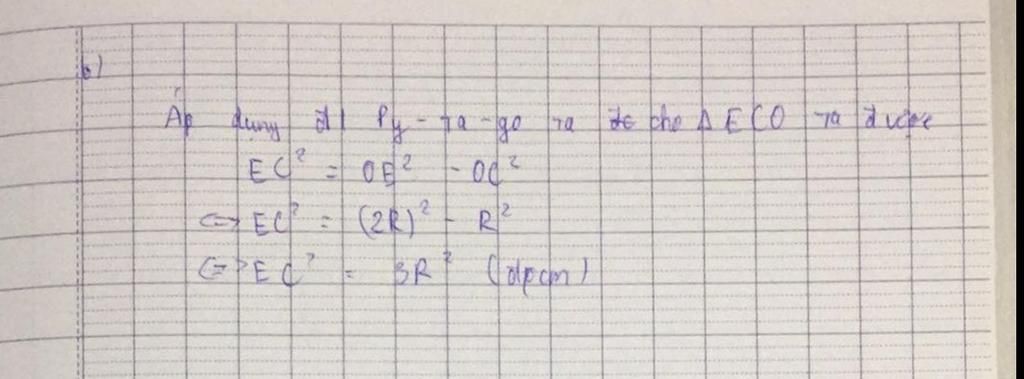 b)
Áp dụng đl Py-ta-go ta cho Δ ECO ta được
EC² = OE² - OC²
<=> EC² = (2R)² - R²
<=> EC² = 3R² (đpcm)